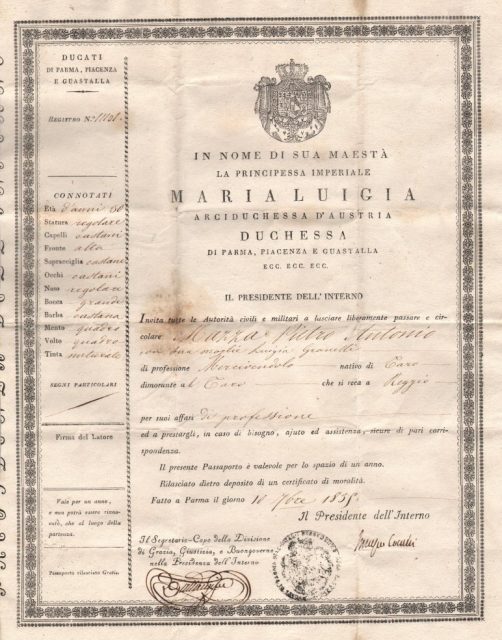 DUCATI
DI PARMA, PIACENZA
E GUASTALLA
REGISTRO N.°
CONNOTATI
Età d'anni 30
Statura regolare
Capelli castani
Fronte alta
Sopracciglia castane
Occhi castani
Naso regolare
Bocca grande
Barba castana
Mento quadro
Volto quadro
Tinta naturale
SEGNI PARTICOLARI
Firma del Latore
Vale per un anno,
e non potrà essere rinno-
vato, che al luogo della
partenza.
Passaporto rilasciato Gratis.
IN NOME DI SUA MAESTÀ
LA PRINCIPESSA IMPERIALE
MARIA LUIGIA
ARCIDUCHESSA D'AUSTRIA
DUCHESSA
DI PARMA, PIACENZA E GUASTALLA
ECC. ECC. ECC.
IL PRESIDENTE DELL'INTERNO
Invita tutte le Autorità civili e militari a lasciare liberamente passare e cir-
colare Mazza Pietro Antonio
con sua moglie Luigia
di professione nativo di Taro
dimorante al Taro che si reca a Reggio
per suoi affari di professione
ed a prestargli, in caso di bisogno, ajuto ed assistenza, sicure di pari corri-
spondenza.
Il presente Passaporto è valevole per lo spazio di un anno.
Rilasciato dietro deposito di un certificato di moralità.
Fatto a Parma il giorno
Il Presidente dell'Interno
Il Segretario-Capo della Divisione
di Grazia, Giustizia, e Buongoverno
nella Presidenza dell'Interno